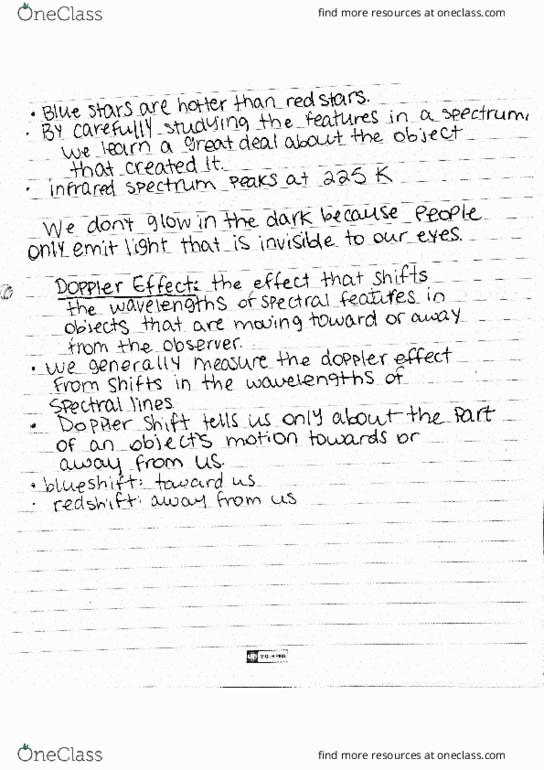 OneClass
find more resources at oneclass.com
• Blue stars are hotter than red stars.
• By carefully studying the features in a spectrum,
we learn a great deal about the object
that created it.
• infrared spectrum peaks at 225 K
We don't glow in the dark because people
only emit light that is invisible to our eyes.
Doppler Effect: the effect that shifts
the wavelengths of spectral features in
objects that are moving toward or away
from the observer.
• we generally measure the doppler effect
from shifts in the wavelengths of
spectral lines
• Doppler shift tells us only about the part
of an object's motion towards or
away from us.
• blueshift: toward us
• redshift: away from us
OneClass
find more resources at oneclass.com